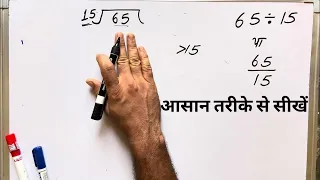 15) 65 (
65 ÷ 15
>15
या
65
15
आसान तरीके से सीखें